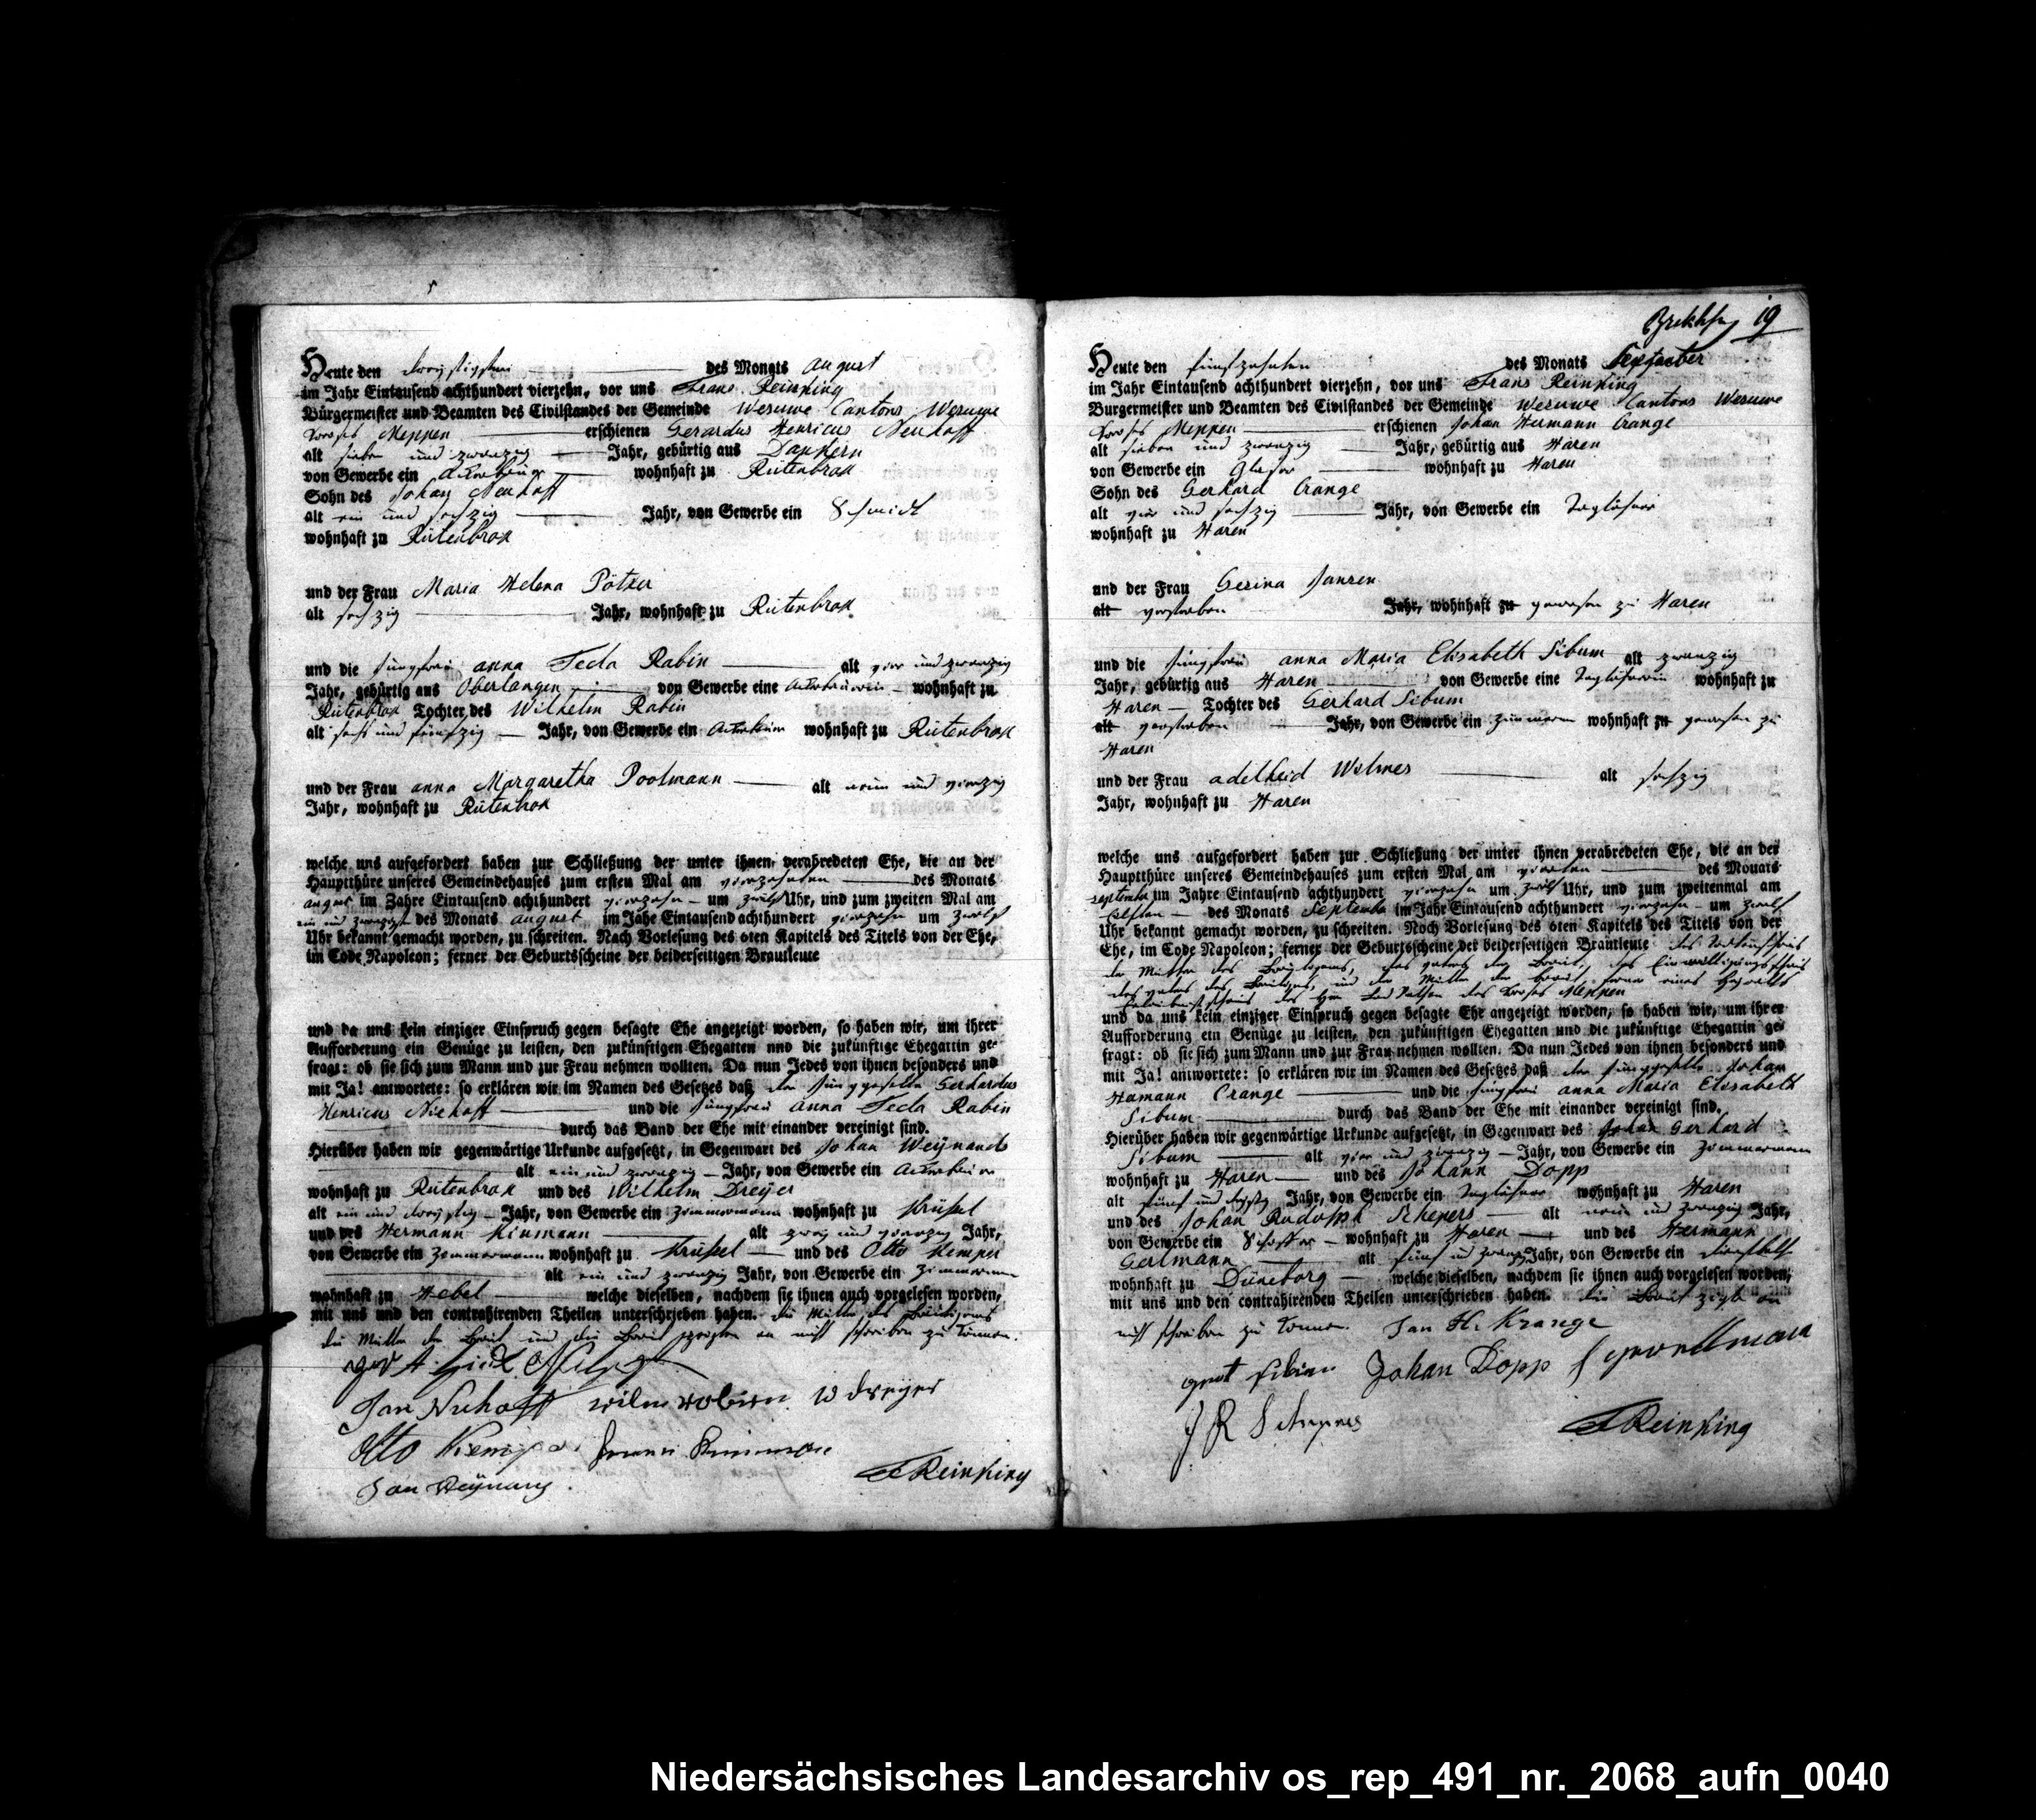 Heute den dreysigsten des Monats august
im Jahr Eintausend achthundert vierzehn, vor uns Frans Reinking
Bürgermeister und Beamten des Civilstandes der Gemeinde Wesuwe Cantons Wesuwe
Meppen erschienen Gerardus Henricus Neuhoff
alt sieben und zwanzig Jahr, gebürtig aus Dankern
von Gewerbe ein wohnhaft zu Rütenbrok
Sohn des Johan Neuhoff
alt ein und sechzig Jahr, von Gewerbe ein Schmidt
wohnhaft zu Rütenbrok
und der Frau Maria Helena Pötker
alt sechzig Jahr, wohnhaft zu Rütenbrok
und die Jungfrau anna Tecla Rabin alt vier und zwanzig
Jahr, gebürtig aus Oberlangen von Gewerbe eine Ackerbäuerin wohnhaft zu
Rütenbrok Tochter des Wilhelm Rabin
alt sechs und fünfzig Jahr, von Gewerbe ein wohnhaft zu Rütenbrok
und der Frau anna Margaretha Poolmann alt neun und vierzig
Jahr, wohnhaft zu Rütenbrok
welche uns aufgefordert haben zur Schließung der unter ihnen verabredeten Ehe, die an der
Hauptthüre unseres Gemeindehauses zum ersten Mal am vierzehnten des Monats
august im Jahre Eintausend achthundert vierzehn um zwölf Uhr, und zum zweiten Mal am
ein und zwanzigst des Monats august im Jahe Eintausend achthundert vierzehn um zwölf
Uhr bekannt gemacht worden, zu schreiten. Nach Vorlesung des 6ten Kapitels des Titels von der Ehe,
im Code Napoleon; ferner der Geburtsscheine der beiderseitigen Brautleute
und da uns kein einziger Einspruch gegen besagte Ehe angezeigt worden, so haben wir, um ihrer
Aufforderung ein Genüge zu leisten, den zukünftigen Ehegatten nnd die zukünftige Ehegattin ge-
fragt: ob sie sich zum Mann und zur Frau nehmen wollten. Da nun Jedes von ihnen besonders und
mit Ja! antwortete: so erklären wir im Namen des Gesetzes daß der Junggeselle Gerhardus
Henricus Niehoff und die Jungfrau anna Tecla Rabin
durch das Band der Ehe mit einander vereinigt sind.
Hierüber haben wir gegenwärtige Urkunde aufgesetzt, in Gegenwart des Johan Weÿnands
alt ein und zwanzig Jahr, von Gewerbe ein
wohnhaft zu Rütenbrok und des Wilhelm Dreÿer
alt ein und dreysig Jahr, von Gewerbe ein Zimmermann wohnhaft zu Krüssel
und des Hermann Kinmann alt zwey und vierzig Jahr,
von Gewerbe ein Zimmermann wohnhaft zu Krüssel und des Otto Kemper
alt ein und zwanzig Jahr, von Gewerbe ein Zimmermann
wohnhaft zu Hebel welche dieselben, nachdem sie ihnen auch vorgelesen worden,
mit uns und den contrahirenden Theilen unterschrieben haben. die Mutter des Bräutigams
die Mutter der Braut und die Braut zeigten an nicht schreiben zu können.
Jan Niehoff wilm Robben W dreyer
Otto Kemper
Jan Weÿnans
F Reinking
19
Heute den fünfzehnten des Monats September
im Jahr Eintausend achthundert vierzehn, vor uns Frans Reinking
Bürgermeister und Beamten des Civilstandes der Gemeinde Wesuwe Cantons Wesuwe
Meppen erschienen Johan Hermann Crange
alt sieben und zwanzig Jahr, gebürtig aus Haren
von Gewerbe ein Glaser wohnhaft zu Haren
Sohn des Gerhard Crange
alt vier und sechzig Jahr, von Gewerbe ein Taglöhner
wohnhaft zu Haren
und der Frau Gesina Jansen
alt verstorben Jahr, wohnhaft zu gewesen zu Haren
und die Jungfrau anna Maria Elisabeth Sibum alt zwanzig
Jahr, gebürtig aus Haren von Gewerbe eine Taglöhnerin wohnhaft zu
Haren Tochter des Gerhard Sibum
alt verstorben Jahr, von Gewerbe ein Zimmermann wohnhaft zu gewesen zu
Haren
und der Frau adelheid Wilmes alt sechzig
Jahr, wohnhaft zu Haren
welche uns aufgefordert haben zur Schließung der unter ihnen verabredeten Ehe, die an der
Hauptthüre unseres Gemeindehauses zum ersten Mal am vierten des Monats
september im Jahre Eintausend achthundert vierzehn um zwölf Uhr, und zum zweitenmal am
eilften des Monats September im Jahr Eintausend achthundert vierzehn um zwölf
Uhr bekannt gemacht worden, zu schreiten. Nach Vorlesung des 6ten Kapitels des Titels von der
Ehe, im Code Napoleon; ferner der Geburtsscheine der beiderseitigen Brautleute des Todtenscheins
der Mutter des Bräutigams, des Vaters der Braut, des Einwilligungsscheins
des Vaters des Bräutigams, und der Mutter der Braut, ferner eines
Erlaubnißscheins des Meppen
und da uns kein einziger Einspruch gegen besagte Ehe angezeigt worden, so haben wir, um ihrer
Aufforderung ein Genüge zu leisten, den zukünftigen Ehegatten und die zukünftige Ehegattin ge-
fragt: ob sie sich zum Mann und zur Frau nehmen wollten. Da nun Jedes von ihnen besonders und
mit Ja! antwortete: so erklären wir im Namen des Gesetzes daß der Junggeselle Johan
Hermann Crange und die Jungfrau anna Maria Elisabeth
Sibum durch das Band der Ehe mit einander vereinigt sind.
Hierüber haben wir gegenwärtige Urkunde aufgesetzt, in Gegenwart des Johan Gerhard
Sibum alt vier und zwanzig Jahr, von Gewerbe ein Zimmermann
wohnhaft zu Haren und des Johann Dopp
alt fünf und Jahr, von Gewerbe ein Taglöhner wohnhaft zu Haren
und des Johan Rudolph Schepers alt neun und zwanzig Jahr,
von Gewerbe ein wohnhaft zu Haren und des Hermann
Gerlmann alt fünf und zwanzig Jahr, von Gewerbe ein
wohnhaft zu Düneborg welche dieselben, nachdem sie ihnen auch vorgelesen worden,
mit uns und den contrahirenden Theilen unterschrieben haben. die Braut zeigte an
nicht schreiben zu können. Jan H. Krange
Johan Dopp
J R Schepers
F Reinking
Niedersächsisches Landesarchiv os_rep_491_nr._2068_aufn_0040